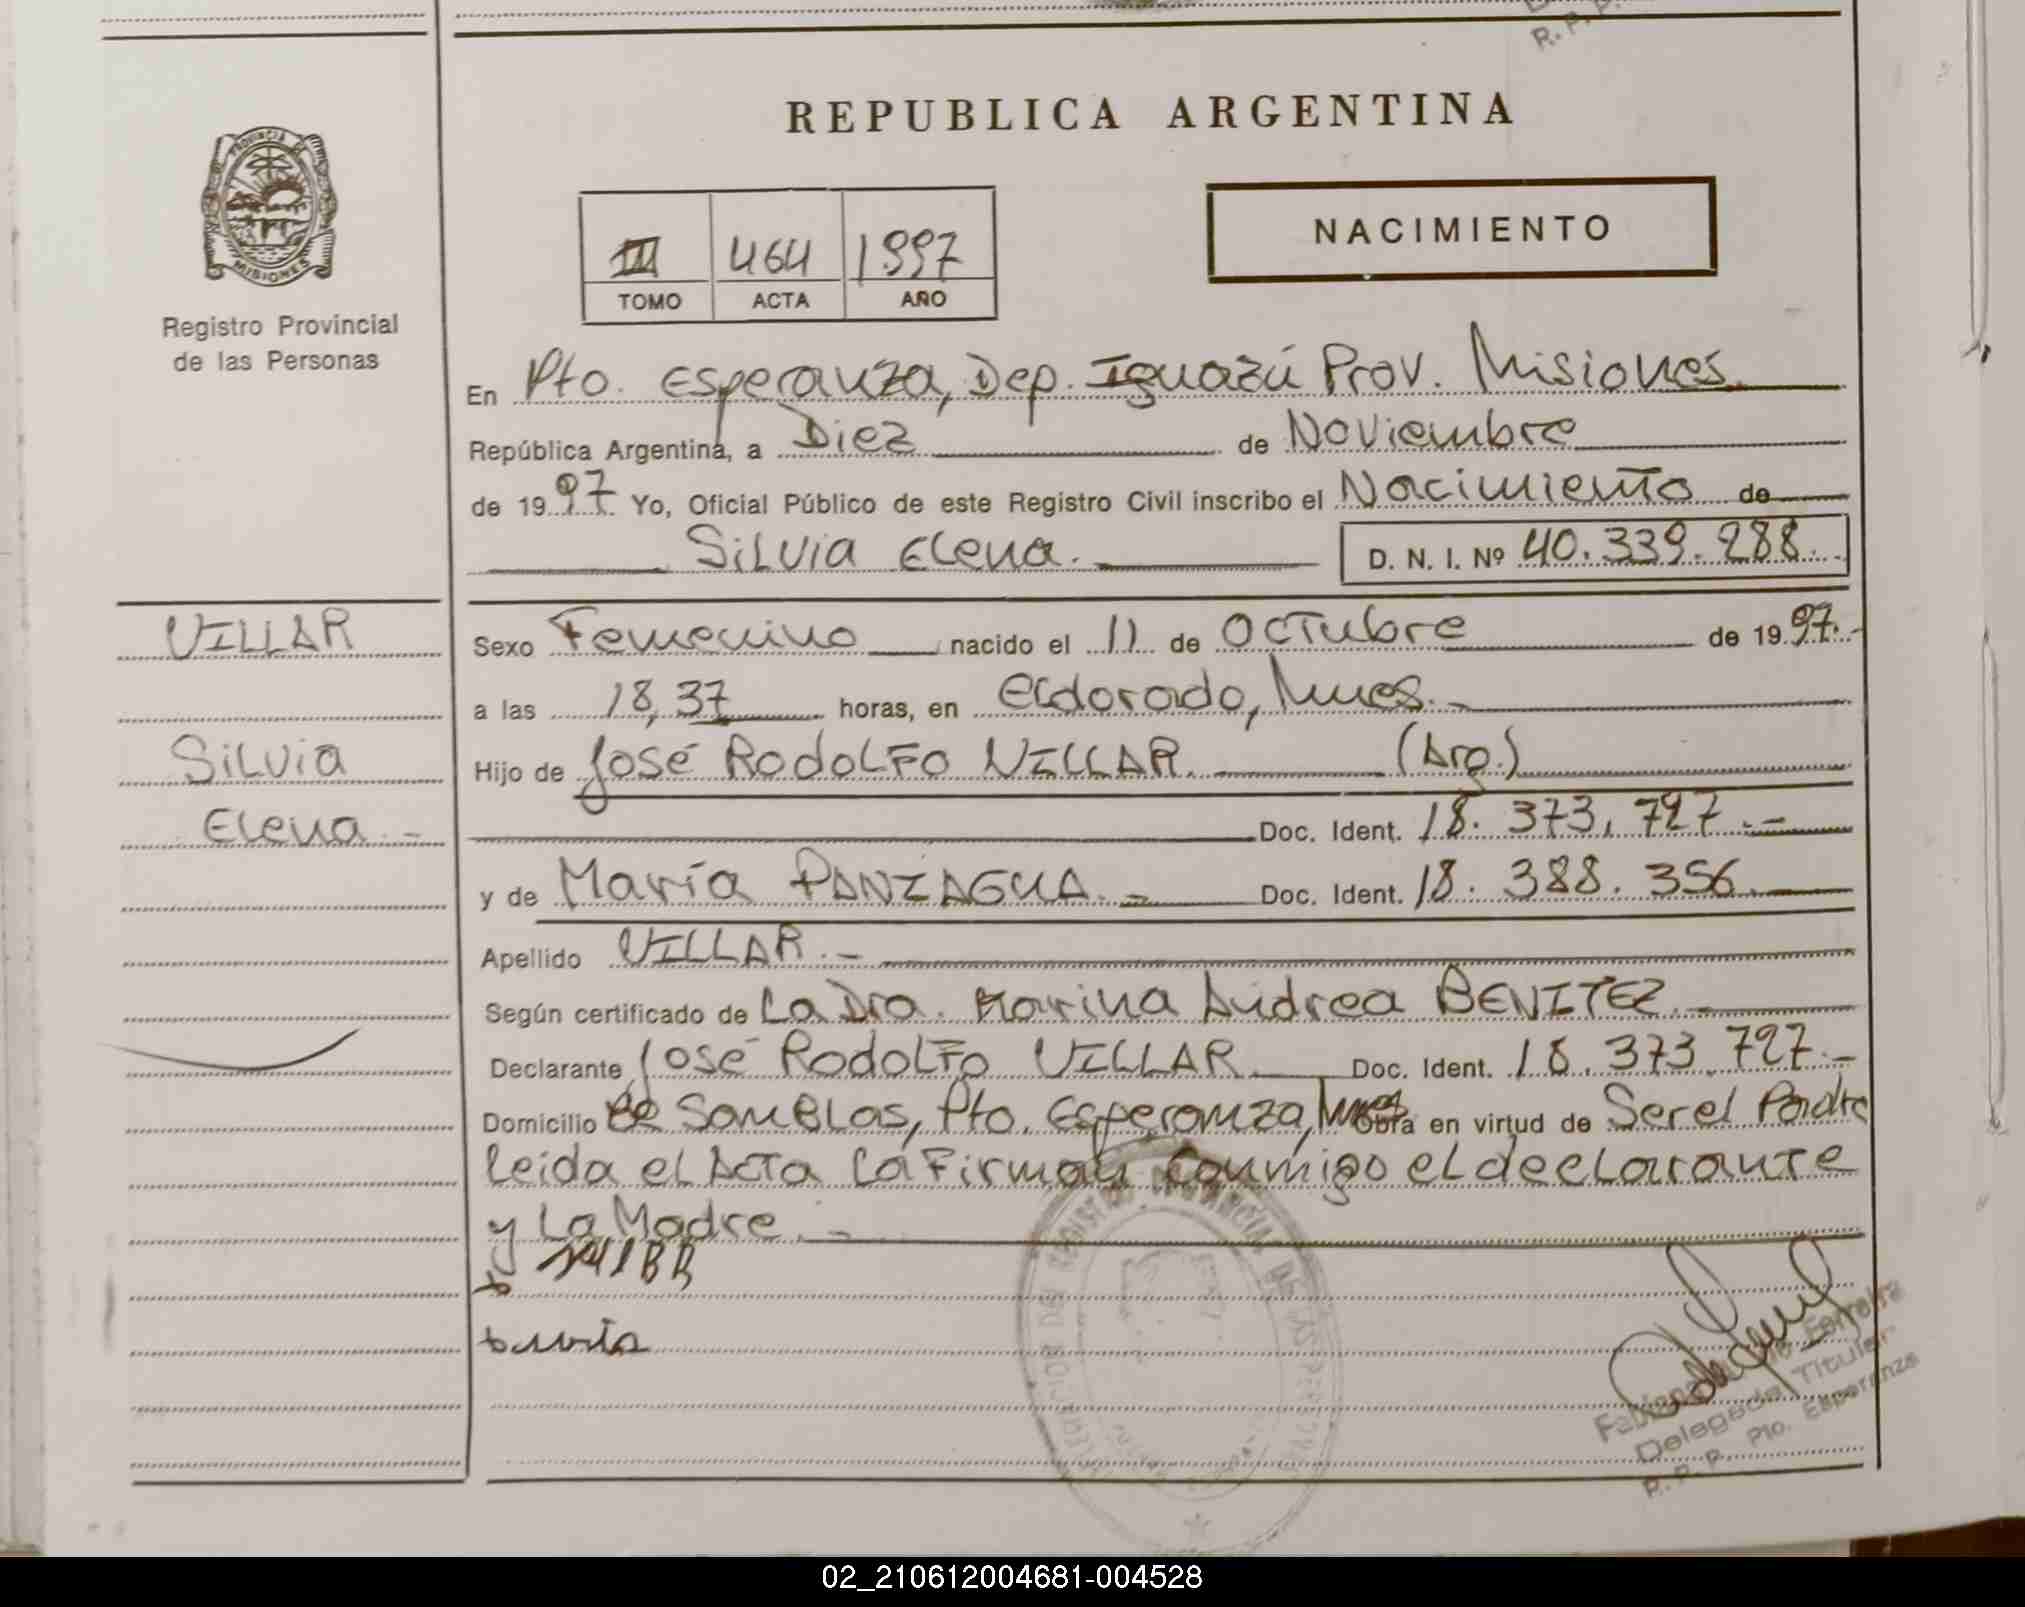 R. P. P.
REPUBLICA ARGENTINA
PROVINCIA DE
MISIONES
Registro Provincial
de las Personas
NACIMIENTO
III 464 1997
TOMO ACTA AÑO
En Pto. Esperanza, Dep. Iguazú Prov. Misiones
República Argentina, a Diez de Noviembre
de 1997 Yo, Oficial Público de este Registro Civil inscribo el Nacimiento de
Silvia Elena. D. N. I. Nº 40.339.288.
VILLAR
Silvia
Elena.-
Sexo Femenino nacido el 11 de Octubre de 1997.-
a las 18,37 horas, en Eldorado, Mnes.-
Hijo de José Rodolfo VILLAR. (Arg.)
Doc. Ident. 18.373.727.-
y de María PANIAGUA.- Doc. Ident. 18.388.356.
Apellido VILLAR.-
Según certificado de La Dra. Marina Andrea BENITEZ.-
Declarante José Rodolfo VILLAR Doc. Ident. 18.373.727.-
Domicilio San Blas, Pto. Esperanza, Mnes Obra en virtud de Ser el Padre
leida el Acta la Firman Conmigo el declarante
y La Madre.-
Delegada Titular
R. P. P. Pto. Esperanza
02_210612004681-004528